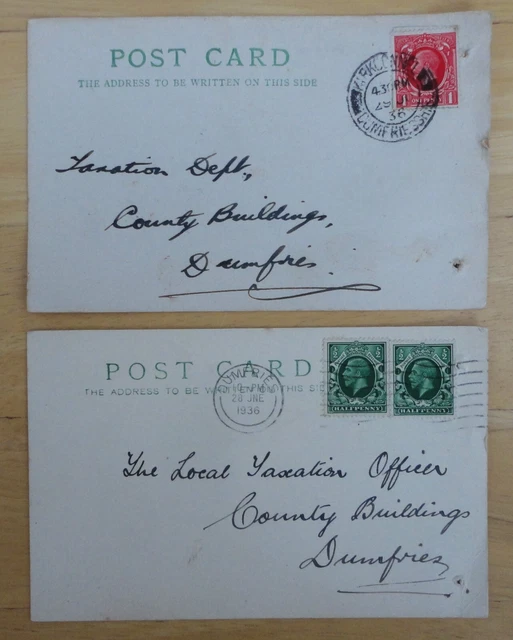 POST CARD
THE ADDRESS TO BE WRITTEN ON THIS SIDE
1
4.30PM
36
DUMFRIESSHIRE
Taxation Dept,
County Buildings,
Dumfries.
POST CARD
THE ADDRESS TO BE WRITTEN ON THIS SIDE
DUMFRIES
PM
28 JNE
1936
HALFPENNY HALFPENNY
The Local Taxation Officer
County Buildings
Dumfries